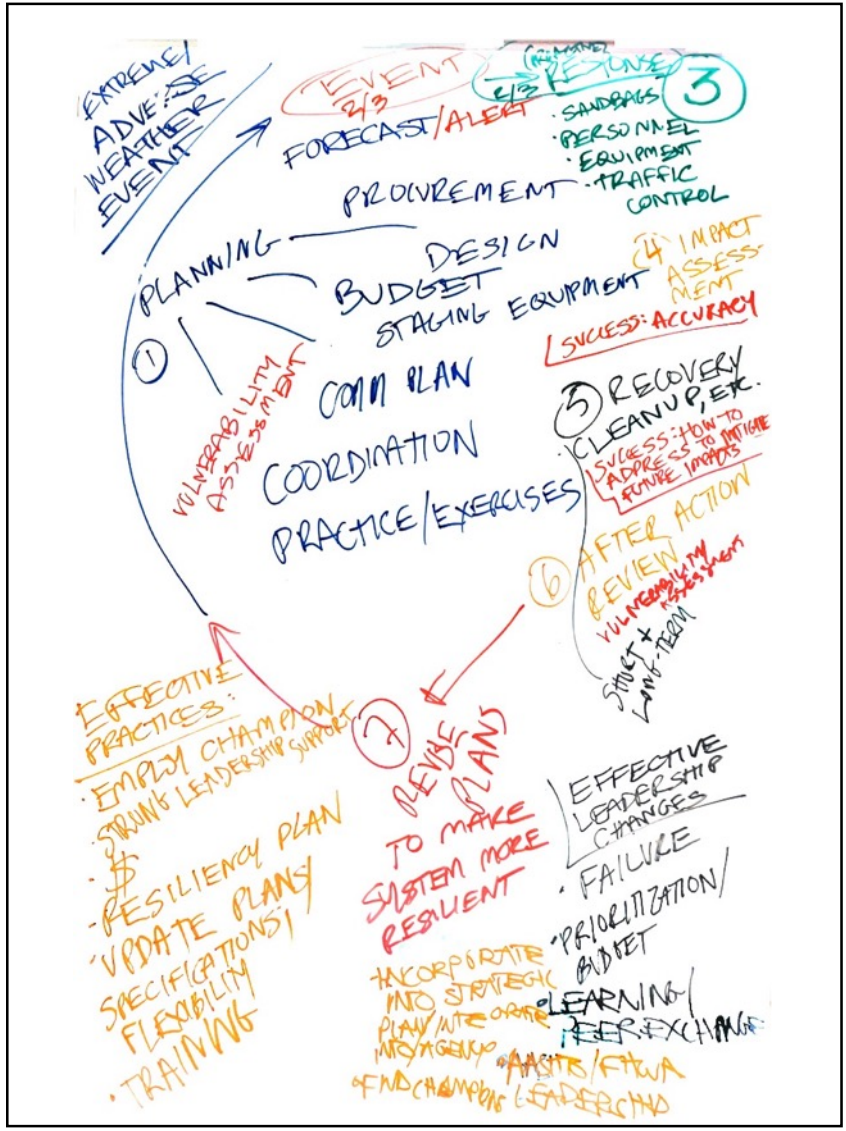 EXTREME/
ADVERSE
WEATHER
EVENT
EVENT
2/3
FORECAST/ALERT
2/3 RESPONSE
3
• SANDBAGS
• PERSONNEL
• EQUIPMENT
• TRAFFIC
CONTROL
PLANNING
1
PROCUREMENT
DESIGN
BUDGET
STAGING EQUIPMENT
COMM PLAN
COORDINATION
PRACTICE/EXERCISES
VULNERABILITY
ASSESSMENT
4 IMPACT
ASSESS-
MENT
SUCCESS: ACCURACY
5 RECOVERY
• CLEANUP, ETC.
SUCCESS: HOW TO
ADDRESS TO MITIGATE
FUTURE IMPACTS
6 AFTER ACTION
REVIEW
VULNERABILITY
ASSESSMENT
SHORT +
LONG-TERM
7
REVISE
PLANS
TO MAKE
SYSTEM MORE
RESILIENT
EFFECTIVE
PRACTICES:
• EMPLOY CHAMPION
• STRONG LEADERSHIP SUPPORT
• $
• RESILIENCY PLAN
• UPDATE PLANS/
SPECIFICATIONS/
FLEXIBILITY
• TRAINING
EFFECTIVE
LEADERSHIP
CHANGES
• FAILURE
• PRIORITIZATION/
BUDGET
• LEARNING/
PEER EXCHANGE
• AASHTO/FHWA
LEADERSHIP
• INCORPORATE
INTO STRATEGIC
PLAN/INTEGRATE
INTO AGENCY
• FIND CHAMPIONS